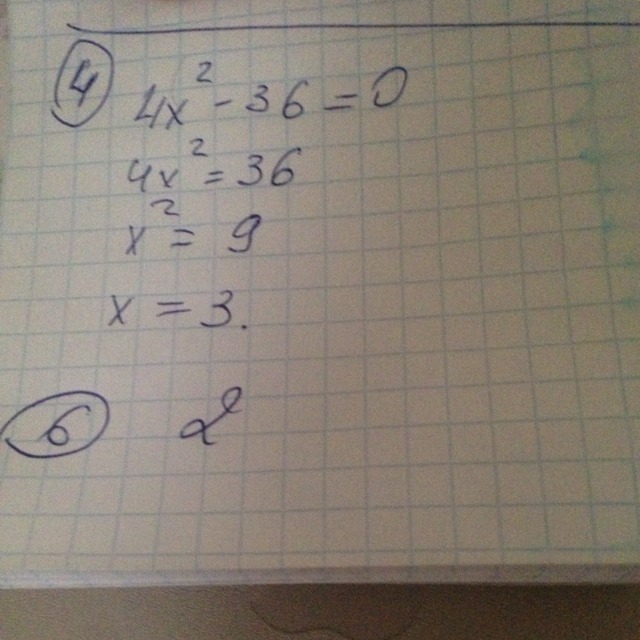 4 4x² - 36 = 0
4x² = 36
x² = 9
x = 3.
6